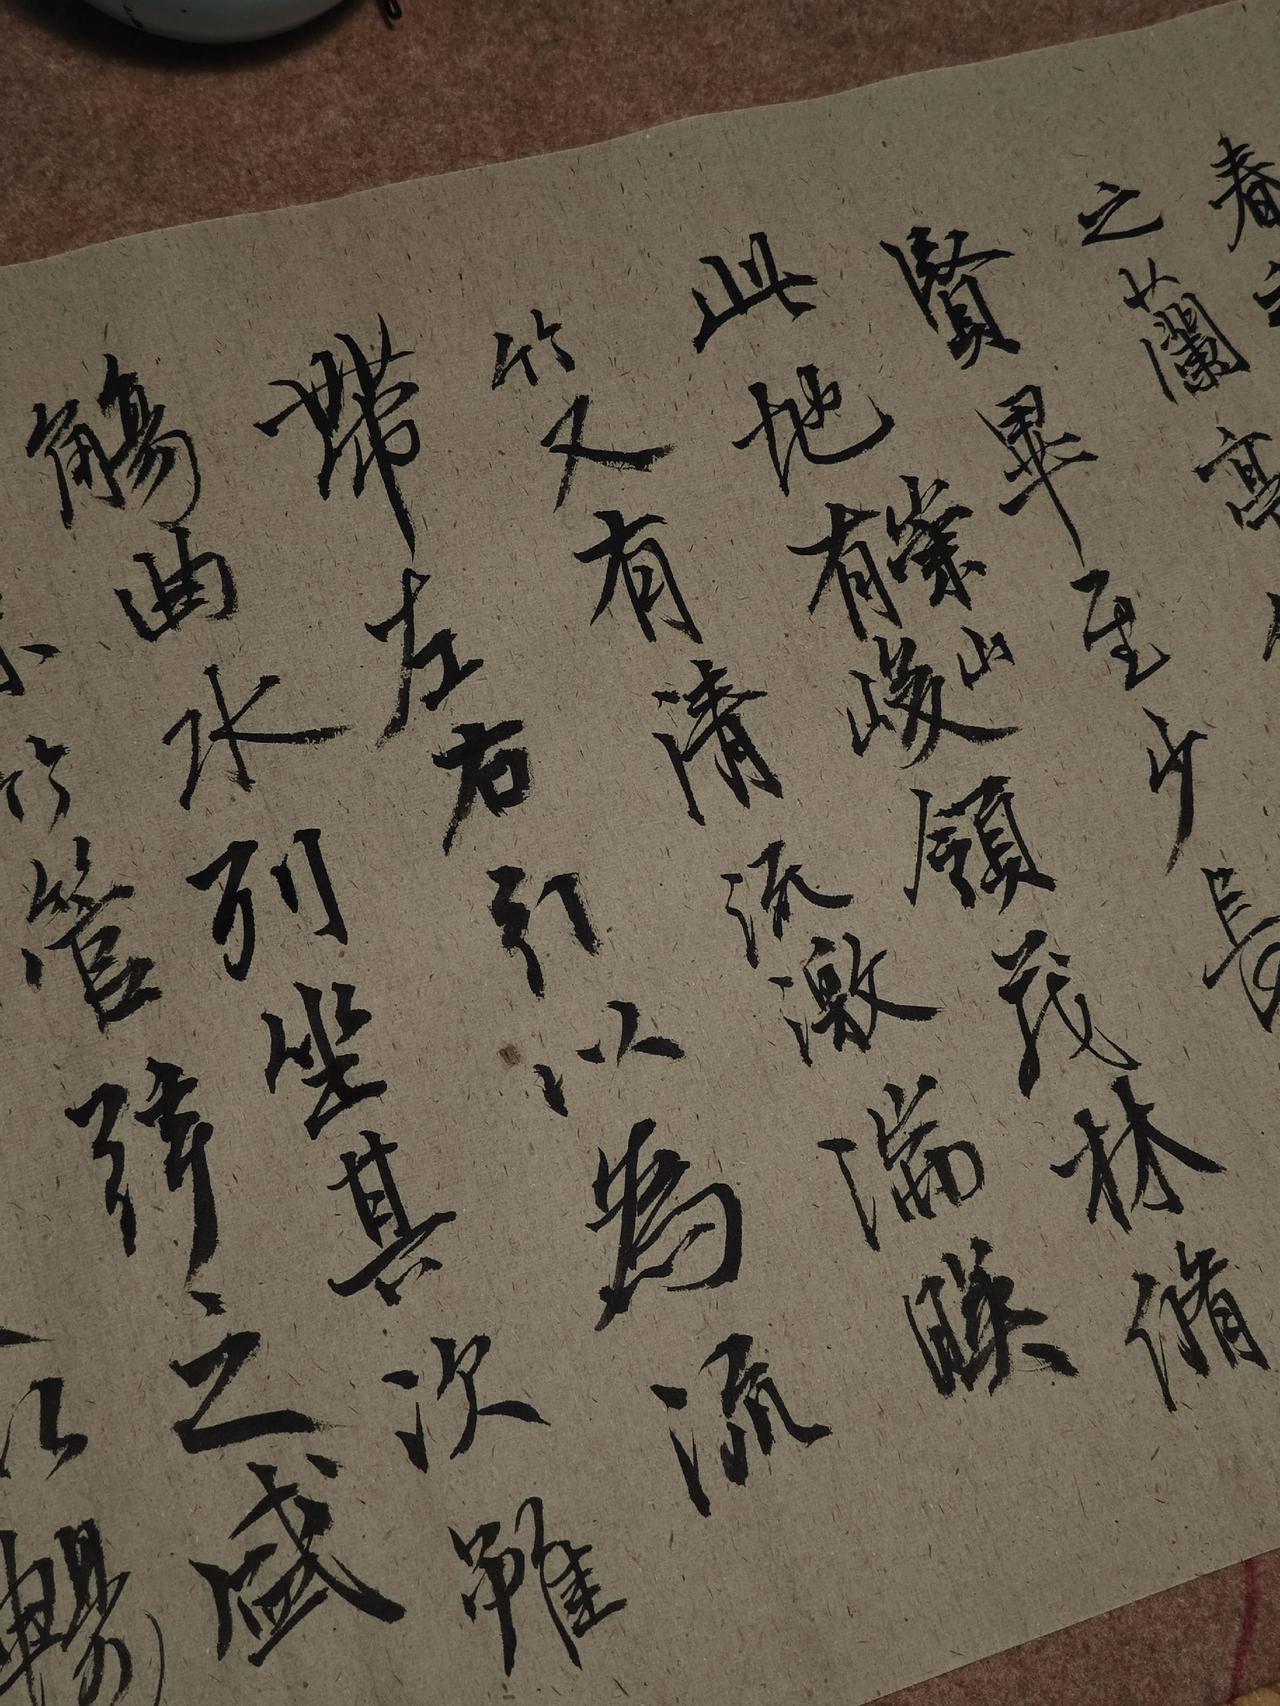 春
之蘭亭
賢畢至少長
此地有崇山峻領茂林脩
竹又有清流激湍暎
帶左右引以為流
觴曲水列坐其次雖
竹管弦之盛
以暢